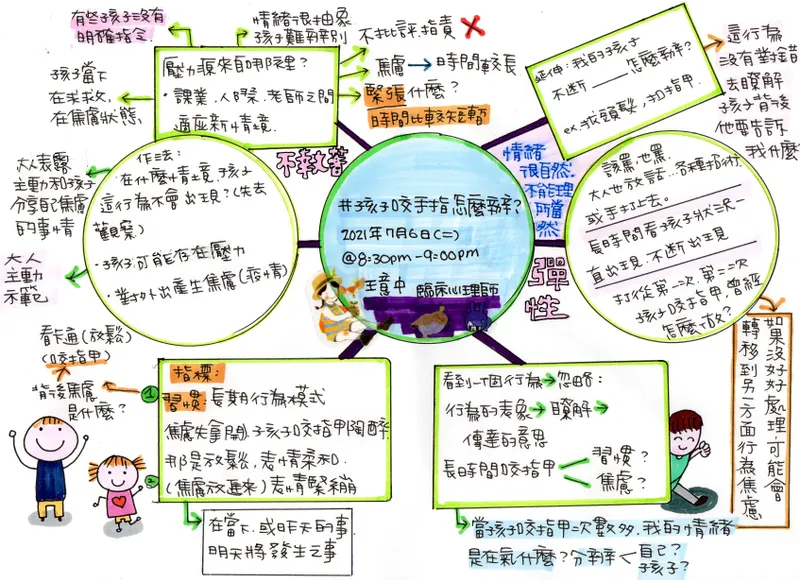 有些孩子沒有
明確指令
情緒很抽象
孩子難辨別
不批評指責
壓力源來自哪裡?
・課業、人際、老師之間
適應新情境.
孩子當下
在求救,
在焦慮狀態
焦慮→時間較長
緊張什麼?
時間比較短暫
延伸:我的孩子
不斷____怎麼辦?
ex.找頭髮,扣指甲.
這行為
沒有對錯
去瞭解
孩子背後
他要告訴
我什麼?
不執著
情緒
很自然.
不能理
所當
然
大人表露
主動和孩子
分享自己焦慮
的事情
大人
主動
示範
作法:
在什麼情境,孩子
這行為不會出現?(先去
觀察)
・孩子可能存在壓力
・對外出產生焦慮(疫情)
#孩子咬手指怎麼辦?
2021年7月6日(二)
@8:30pm-9:00pm
王意中 臨床心理師
彈性
該罵也罵.
大人也放話.各種招術.
或手打上去.
長時間看孩子狀況一
直出現.不斷出現
打從第一次.第二次
孩子咬指甲,曾經
怎麼做?
如果沒好好
處理,可能會
轉移到另一方面行為焦慮
看卡通(放鬆)
(咬指甲)
背後焦慮
是什麼?
指標:
1 習慣:長期行為模式
焦慮先拿開.孩子咬指甲陶醉
那是放鬆,表情柔和.
2 (焦慮放進來)表情緊繃
在當下,或昨天的事
明天將發生之事
看到一個行為→忽略:
行為的表象→瞭解→
傳達的意思
長時間咬指甲
習慣?
焦慮?
當孩子咬指甲次數多,我的情緒
是在氣什麼?分辨
自己?
孩子?